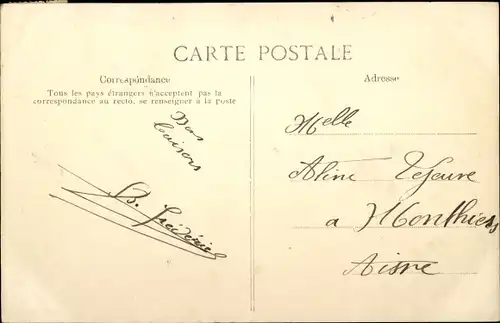 CARTE POSTALE
Correspondance
Tous les pays étrangers n'acceptent pas la
correspondance au recto, se renseigner à la poste
Bons
baisers
Adresse
Melle
Aline Lefeuvre
a Monthiers
Aisne